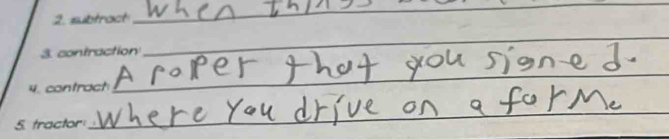 2. subtract When thi
3. contraction:
4. contract: A roper that you signed.
5. tractor: Where You drive on a farMe